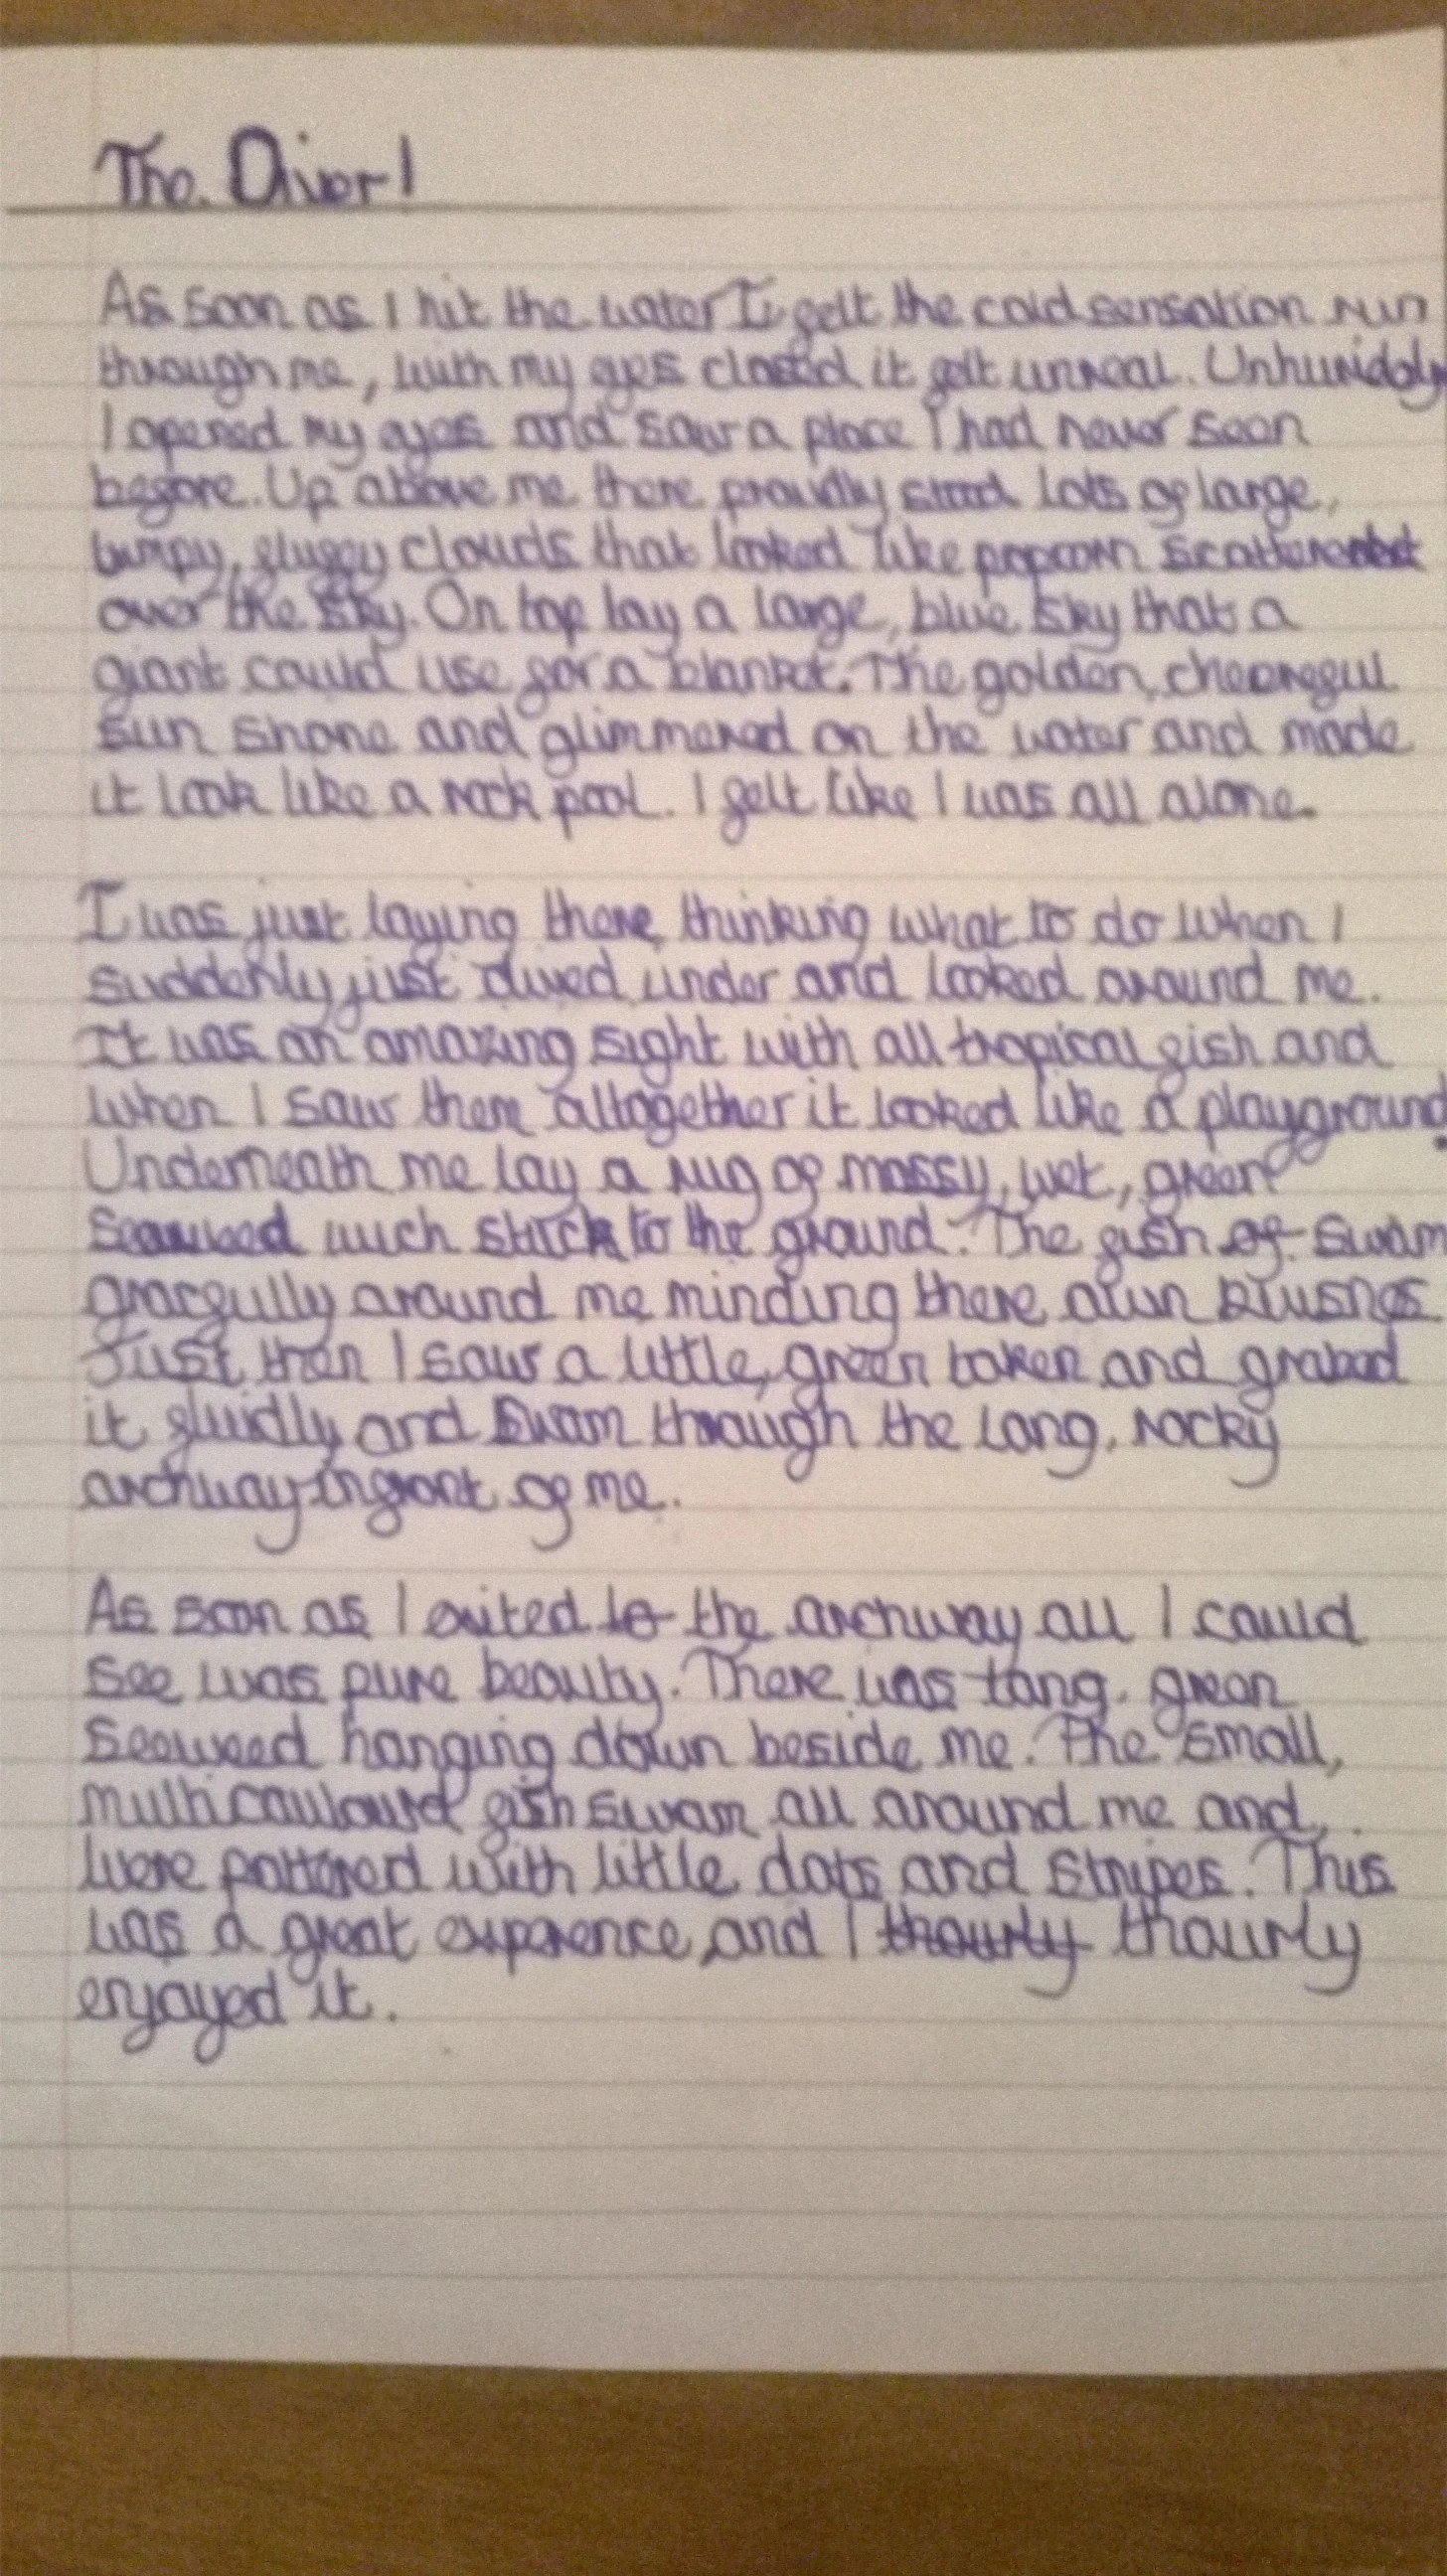 The Diver!
As soon as I hit the water I felt the cold sensation run
through me, with my eyes closed it felt unreal. Unhuridoly
I opened my eyes and saw a place I had never seen
before. Up above me there proudly stood lots of large,
bumpy, fluffy clouds that looked like popcorn
over the sky. On top lay a large, blue sky that a
giant could use for a blanket. The golden, cheerefull
sun shone and glimmered on the water and made
it look like a rock pool. I felt like I was all alone.
I was just laying there, thinking what to do when I
suddenly just dived under and looked around me.
It was an amazing sight with all tropical fish and
when I saw them altogether it looked like a playground.
Underneath me lay a rug of mossy, wet, green
seaweed stuck to the ground. The fish of swam
gracfully around me minding there own
Just then I saw a little, green token and grabed
it fluidly and swam through the long, rocky
archway infront of me.
As soon as I exited to the archway all I could
see was pure beauty. There was green
seaweed hanging down beside me. The small,
fish swam all around me and,
were with little dots and stripes. This
was a great and I thourly thourly
enjoyed it.